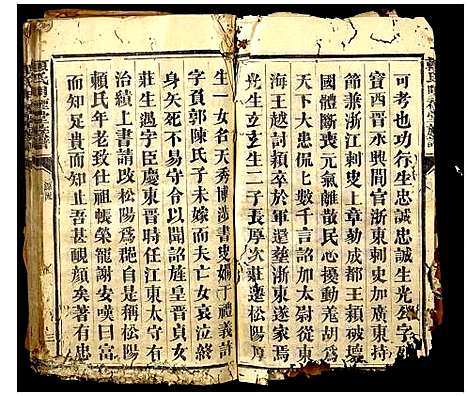 可考也功行生忠誠忠誠生光公字
寶西晉永興間官浙東刺史加廣東
節兼浙江刺史上章勒成都王穎破壞
國體斷喪元氣離散民心擾動羌胡爲
下大患侃上數千言詔加太尉從東
海王越討穎卒於軍塟浙東遂家焉
光生立立生二子長厚次莊遷松陽
生一女名天秀博涉書史嫻于禮義許
字頁郭陳氏子未嫁而夫亡女哀泣終
身矢死不易守令以聞詔旌皇晉貞女
莊生遇字臣慶東晉時任江東太守有
治績上書請攻松陽爲郡自是稱松陽
賴氏年老致仕祖帳榮寵謝安嘆曰富
而知足貴而知止吾甚覩顏矣著有忠
賴氏
堂族譜